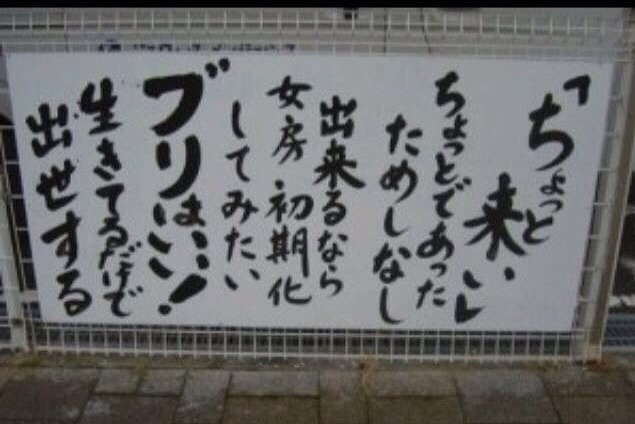 「ちょっと
来い」
ちょっとであった
ためしなし
出来るなら
女房初期化
してみたい
ブリはいい!
生きてるだけで
出世する